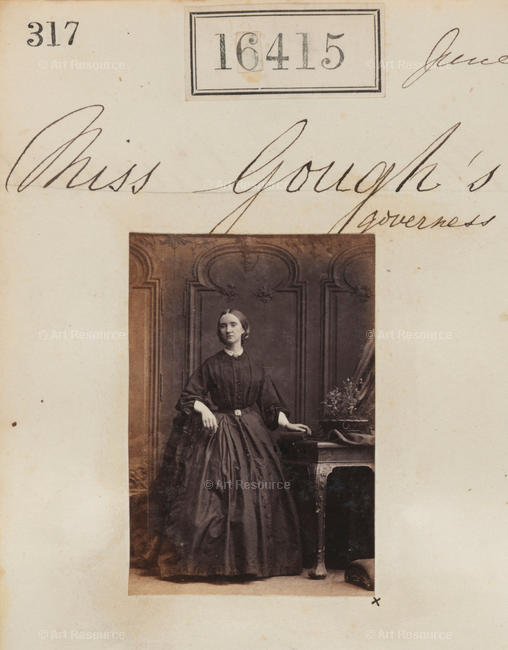 317
16415
June
Miss Gough's
governess
x
© Art Resource
© Art Resource
© Art Resource
© Art Resource
© Art Resource
© Art Resource
© Art Resource